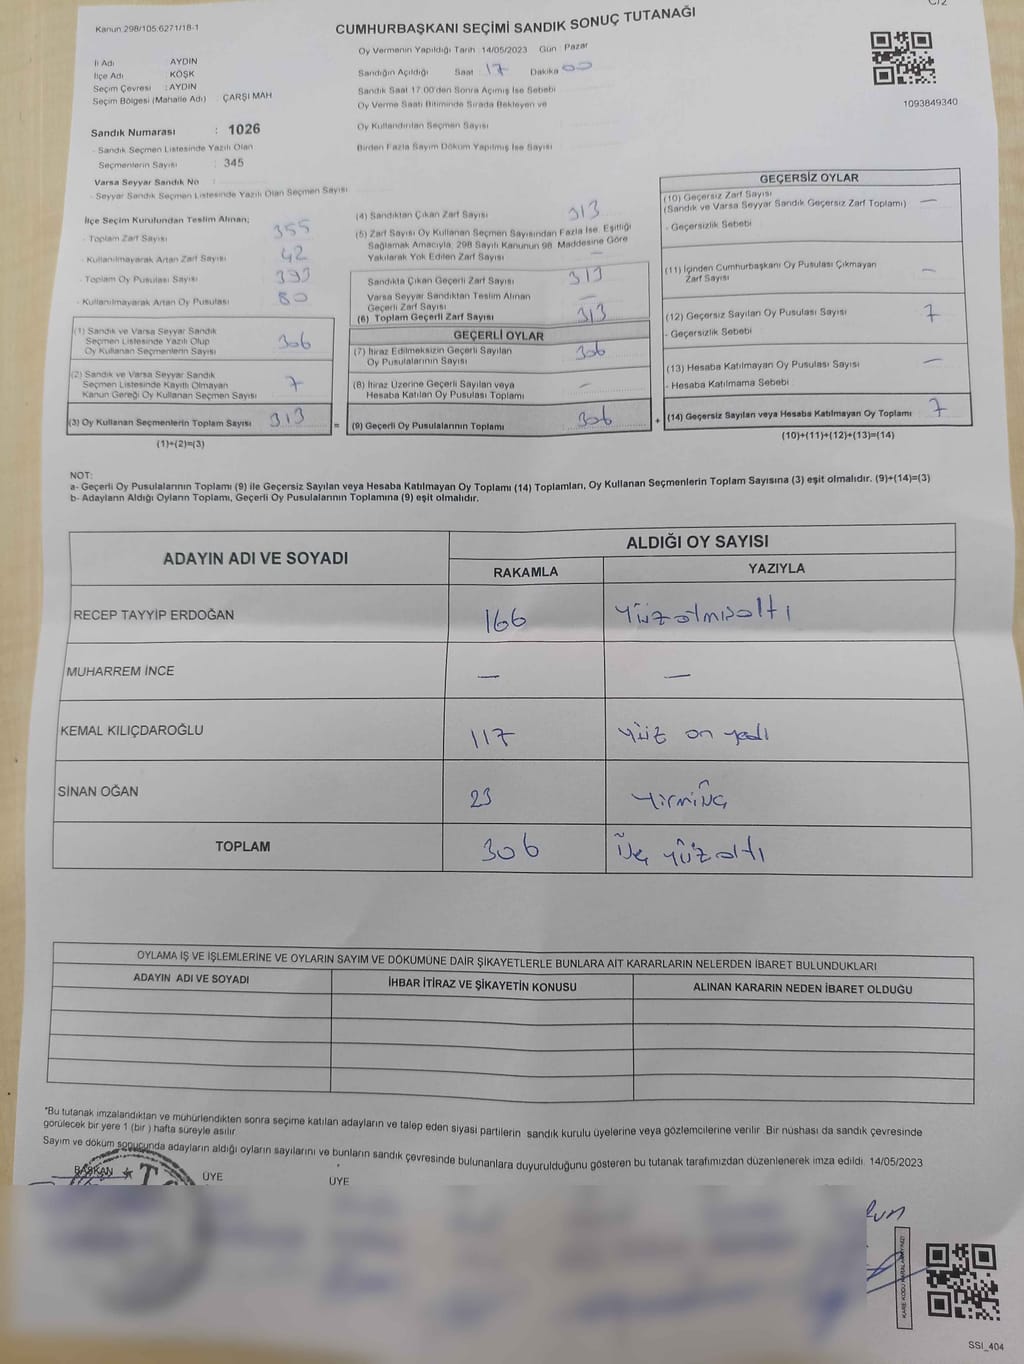 C/2
Kanun 298/105:6271/18-1
CUMHURBAŞKANI SEÇİMİ SANDIK SONUÇ TUTANAĞI
Oy Vermenin Yapıldığı Tarih 14/05/2023 Gün : Pazar
Sandığın Açıldığı Saat : 17 Dakika 00
Sandık Saat 17:00'den Sonra Açımış İse Sebebi
Oy Verme Saati Bitiminde Sırada Bekleyen ve
Oy Kullandırılan Seçmen Sayısı
Birden Fazla Sayım Döküm Yapılmış İse Sayısı
1093849340
İl Adı AYDIN
İlçe Adı : KÖŞK
Seçim Çevresi : AYDIN
Seçim Bölgesi (Mahalle Adı) ÇARŞI MAH
Sandık Numarası : 1026
- Sandık Seçmen Listesinde Yazılı Olan
Seçmenlerin Sayısı : 345
Varsa Seyyar Sandık No :
- Seyyar Sandık Seçmen Listesinde Yazılı Olan Seçmen Sayısı
İlçe Seçim Kurulundan Teslim Alınan;
- Toplam Zarf Sayısı 355
- Kullanılmayarak Artan Zarf Sayısı 42
- Toplam Oy Pusulası Sayısı 393
- Kullanılmayarak Artan Oy Pusulası 80
(1) Sandık ve Varsa Seyyar Sandık
Seçmen Listesinde Yazılı Olup
Oy Kullanan Seçmenlerin Sayısı 306
(2) Sandık ve Varsa Seyyar Sandık
Seçmen Listesinde Kayıtlı Olmayan
Kanun Gereği Oy Kullanan Seçmen Sayısı 7
(3) Oy Kullanan Seçmenlerin Toplam Sayısı 313
(1)+(2)=(3)
(4) Sandıktan Çıkan Zarf Sayısı 313
(5) Zarf Sayısı Oy Kullanan Seçmen Sayısından Fazla İse, Eşitliği
Sağlamak Amacıyla, 298 Sayılı Kanunun 98. Maddesine Göre
Yakılarak Yok Edilen Zarf Sayısı —
Sandıkta Çıkan Geçerli Zarf Sayısı 313
Varsa Seyyar Sandıktan Teslim Alınan
Geçerli Zarf Sayısı —
(6) Toplam Geçerli Zarf Sayısı 313
GEÇERLİ OYLAR
(7) İtiraz Edilmeksizin Geçerli Sayılan
Oy Pusulalarının Sayısı 306
(8) İtiraz Üzerine Geçerli Sayılan veya
Hesaba Katılan Oy Pusulası Toplamı —
= (9) Geçerli Oy Pusulalarının Toplamı 306
GEÇERSİZ OYLAR
(10) Geçersiz Zarf Sayısı
(Sandık ve Varsa Seyyar Sandık Geçersiz Zarf Toplamı) —
- Geçersizlik Sebebi
(11) İçinden Cumhurbaşkanı Oy Pusulası Çıkmayan
Zarf Sayısı —
(12) Geçersiz Sayılan Oy Pusulası Sayısı 7
- Geçersizlik Sebebi
(13) Hesaba Katılmayan Oy Pusulası Sayısı —
- Hesaba Katılmama Sebebi
+ (14) Geçersiz Sayılan veya Hesaba Katılmayan Oy Toplamı 7
(10)+(11)+(12)+(13)=(14)
NOT:
a- Geçerli Oy Pusulalarının Toplamı (9) ile Geçersiz Sayılan veya Hesaba Katılmayan Oy Toplamı (14) Toplamları, Oy Kullanan Seçmenlerin Toplam Sayısına (3) eşit olmalıdır. (9)+(14)=(3)
b- Adayların Aldığı Oyların Toplamı, Geçerli Oy Pusulalarının Toplamına (9) eşit olmalıdır.
ADAYIN ADI VE SOYADI ALDIĞI OY SAYISI
RAKAMLA YAZIYLA
RECEP TAYYİP ERDOĞAN 166 Yüzatmışaltı
MUHARREM İNCE — —
KEMAL KILIÇDAROĞLU 117 Yüz on yedi
SİNAN OĞAN 23 Yirmiüç
TOPLAM 306 Üç yüz altı
OYLAMA İŞ VE İŞLEMLERİNE VE OYLARIN SAYIM VE DÖKÜMÜNE DAİR ŞİKAYETLERLE BUNLARA AİT KARARLARIN NELERDEN İBARET BULUNDUKLARI
ADAYIN ADI VE SOYADI İHBAR İTİRAZ VE ŞİKAYETİN KONUSU ALINAN KARARIN NEDEN İBARET OLDUĞU
*Bu tutanak imzalandıktan ve mühürlendikten sonra seçime katılan adayların ve talep eden siyasi partilerin sandık kurulu üyelerine veya gözlemcilerine verilir. Bir nüshası da sandık çevresinde
görülecek bir yere 1 (bir ) hafta süreyle asılır.
Sayım ve döküm sonucunda adayların aldığı oyların sayılarını ve bunların sandık çevresinde bulunanlara duyurulduğunu gösteren bu tutanak tarafımızdan düzenlenerek imza edildi. 14/05/2023
BAŞKAN ÜYE ÜYE
SSI_404